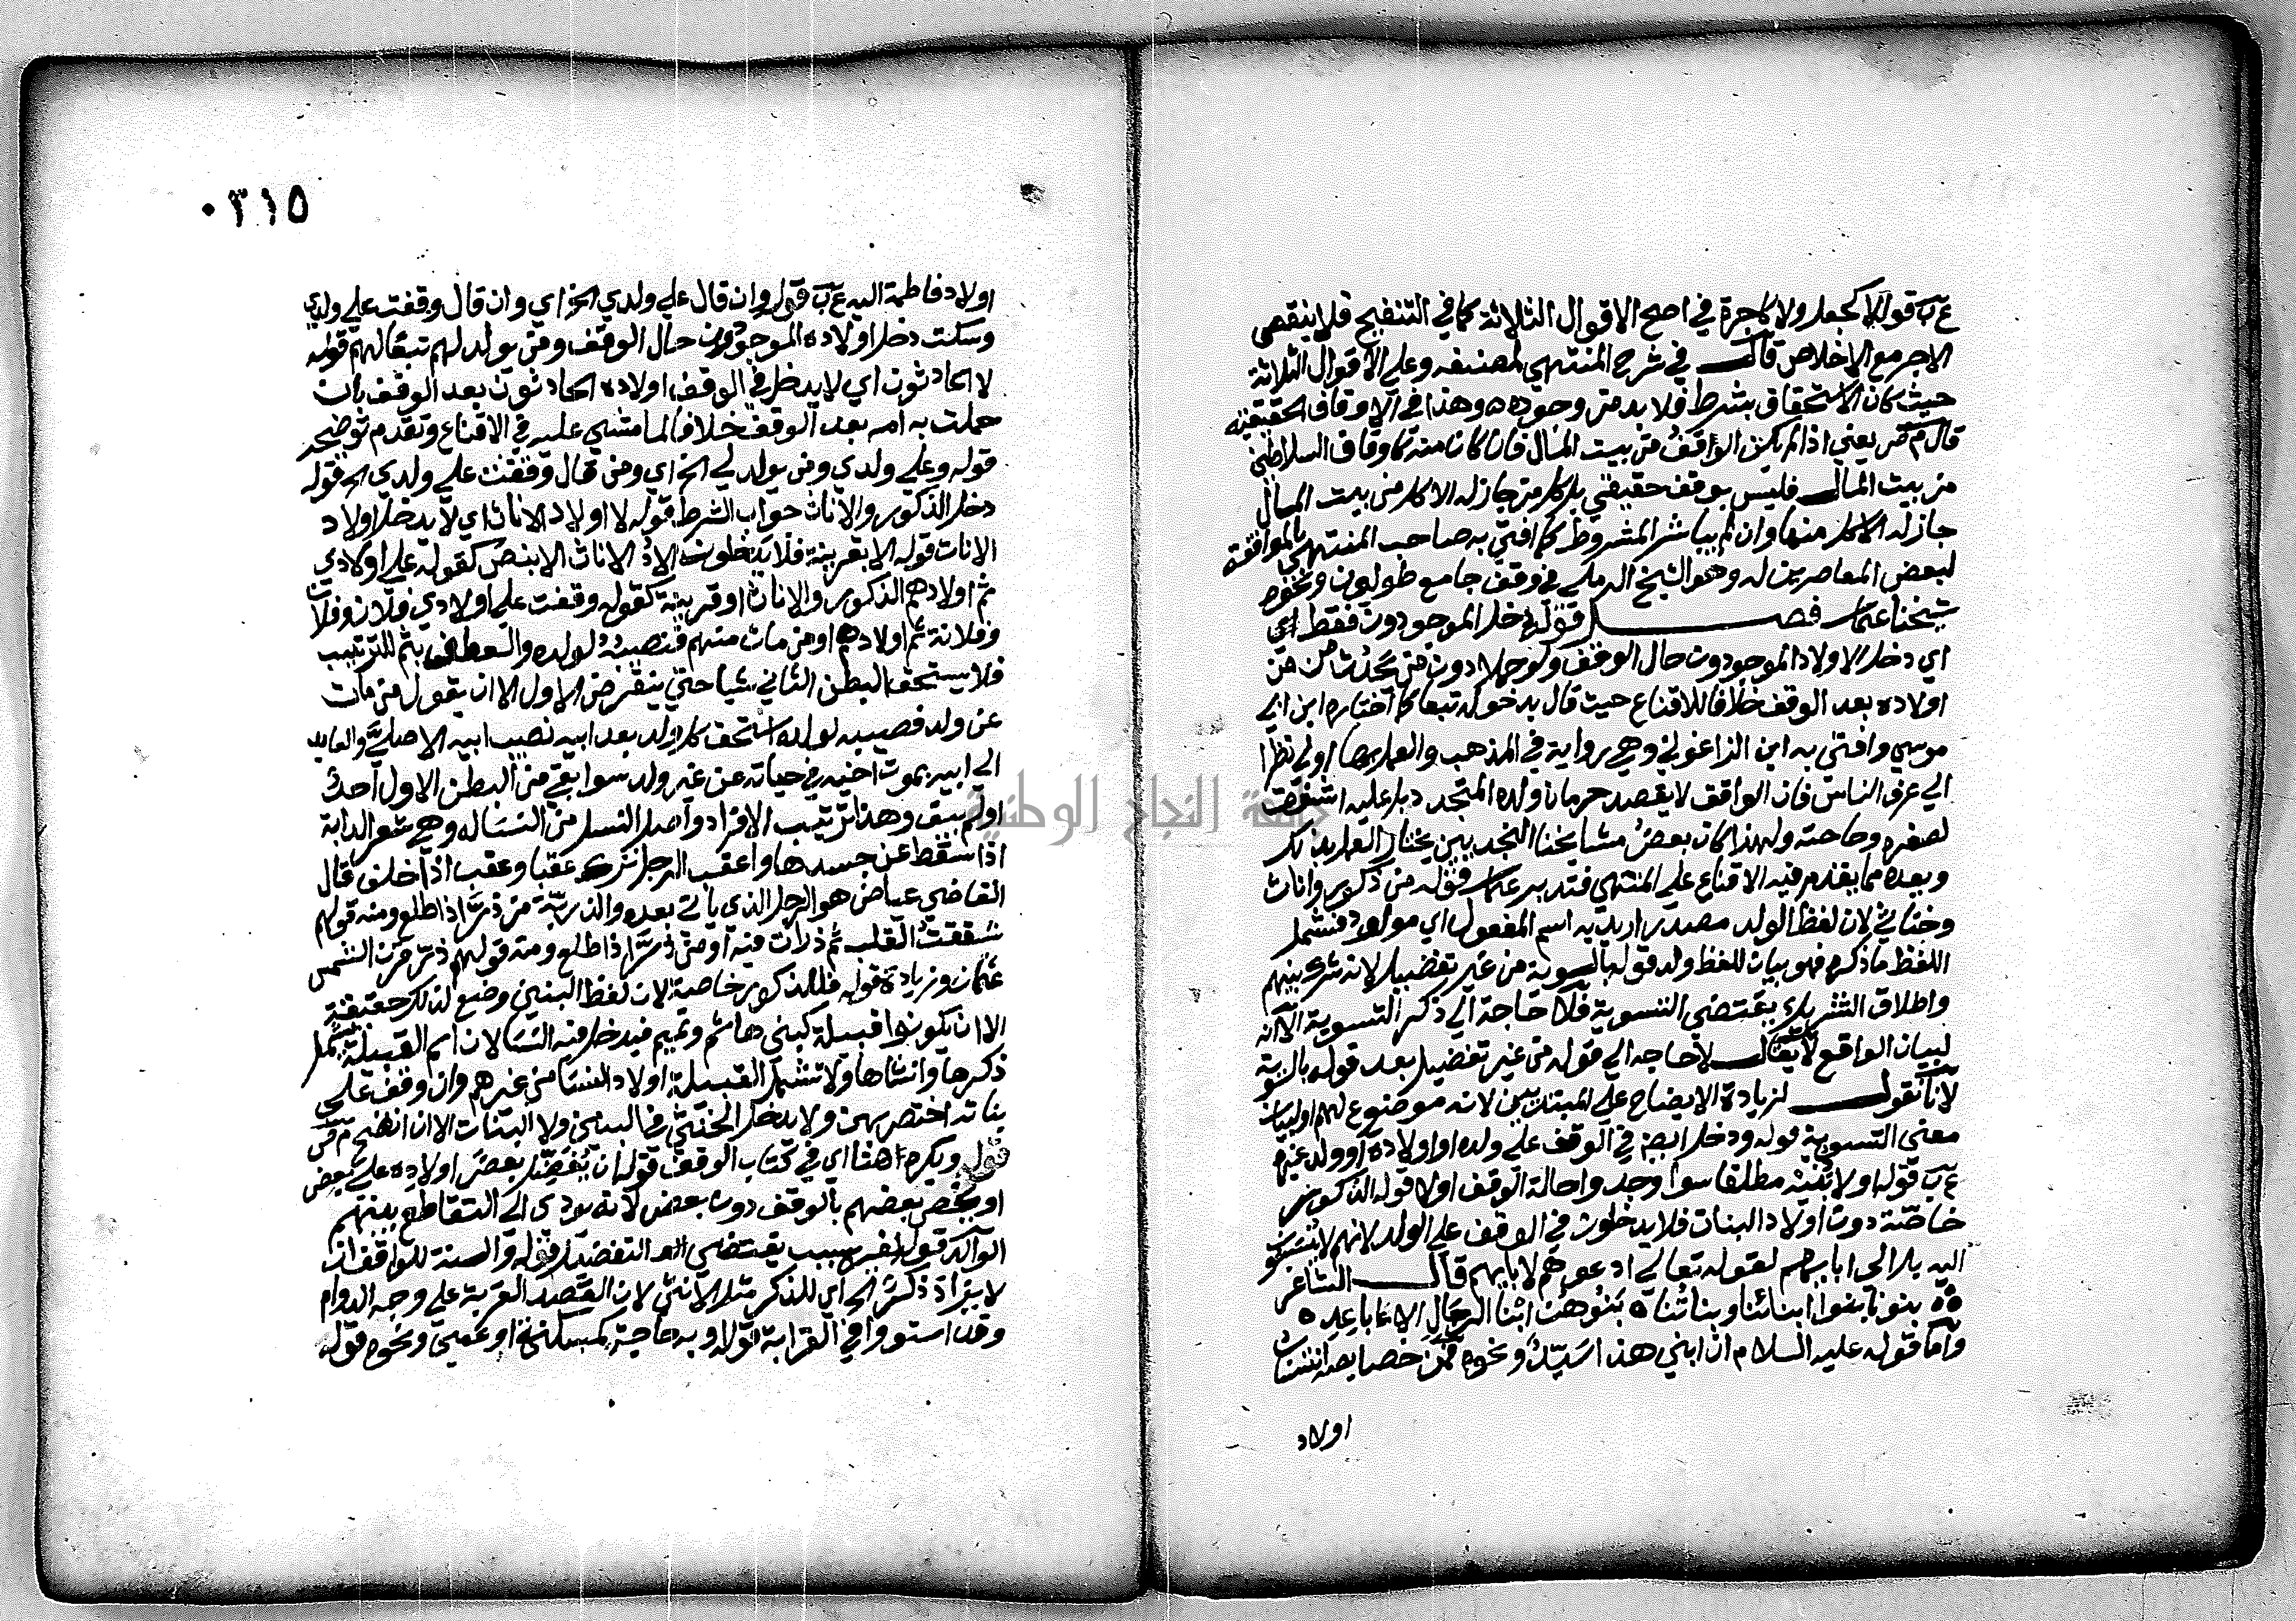 ع ب قوله لا كجعل ولا كاجرة في اصح الاقوال الثلاثة كما في التنقيح فلا ينقص
الاجر مع الاخلاص قال في شرح المنتهي لمصنفه وعلي الاقوال الثلاثة
حيث كان الاستحقاق بشرط فلا بد من وجوده وهذا في الاوقاف الحقيقية
قال م ص يعني اذا لم يكن الواقف من بيت المال فان كان منه كاوقاف السلاطين
من بيت المال فليس بوقف حقيقي بل كل من جاز له الاكل من بيت المال
جاز له الاكل منها وان لم يباشر المشروط كما افتي به صاحب المنتهي بالموافقة
لبعض المعاصرين له وهو الشيخ الرملي في وقف جامع طولون ونحوه
شيخنا عثمان فصل قوله دخل الموجودون فقط اي
اي دخل الاولاد الموجودون حال الوقف ولو حملا دون من يحدث من
اولاده بعد الوقف خلافا للاقناع حيث قال بدخوله تبعا كما اختاره ابن ابي
موسي وافتي به ابن الزاغوني وهي رواية في المذهب والعمل بها اولي نظرا
الي عرف الناس فان الواقف لا يقصد حرمان ولده المتجدد بل عليه اشفق
لصغره وحاجته ولهذا كان بعض مشايخنا النجديين يختار العمل بذلك
وبعده مما يقدم فيه الاقناع علي المنتهي فتدبر عثمان قوله من ذكور واناث
وخناثي لان لفظ الولد مصدر اريد به اسم المفعول اي مولود فشمل
اللفظ ما ذكره فهو بيان للفظ ولد قوله بالسوية من غير تفضيل لانه شرك بينهم
واطلاق التشريك يقتضي التسوية فلا حاجة الي ذكر التسوية الا انه
لبيان الواقع لا يقال لا حاجه الي قوله من غير تفضيل بعد قوله بالسوية
لانا نقول لزيادة الايضاح علي المبتدئين لانه موضوع لهم او لبيان
معني التسوية قوله ودخل ايضا في الوقف علي ولده او اولاده او ولد غيره
ع ب قوله اولاد بنيه مطلقا سوا وجدوا حالة الوقف اولا قوله الذكور
خاصة دون اولاد البنات فلا يدخلون في الوقف علي الولد لانهم لا ينسبون
اليه بل الي ابايهم لقوله تعالي ادعوهم لابايهم قال الشاعر
بنونا بنوا ابنائنا وبناتنا ه بنوهن ابنا الرجال الاباعد ه
واما قوله عليه السلام ان ابني هذا سيد ونحوه فمن خصايصه انتساب
اولاد
٠٣١٥
اولاد فاطمة اليه ع ب قوله وان قال علي ولدي الخ اي وان قال وقفت علي ولدي
وسكت دخل اولاده الموجودون حال الوقف ومن يولد لهم تبعا لهم قوله
لا الحادثون اي لا يدخل في الوقف اولاده الحادثون بعد الوقف بان
حملت به امه بعد الوقف خلافا لما مشي عليه في الاقناع وتقدم توضيحه
قوله وعلي ولدي ومن يولد لي الخ اي ومن قال وقفت علي ولدي الخ قوله
دخل الذكور والاناث جواب الشرط قوله لا اولاد الاناث اي لا يدخل اولاد
الاناث قوله الا بقرينة فلا يدخلون الاد الاناث الا بنص كقوله علي اولادي
ثم اولادهم الذكور والاناث او قرينة كقوله وقفت علي اولادي فلان وفلان
وفلانة ثم اولادهم او من مات منهم فنصيبه لولده والعطف بثم للترتيب
فلا يستحق البطن الثاني شيا حتي ينقرض الاول الا ان يقول من مات
عن ولد فصيبه لولده استحق كل ولد بعد ابيه نصيب ابيه الاصلي والعايد
الي ابيه بموت اخيه في حياته عن غير ولد سوا بقي من البطن الاول احد
اولم يبق وهذا ترتيب الافراد واصل النسل من النسالة وهي شعر الدابة
اذا سقط عن جسدها واعقب الرجل ترك عقبا وعقب اذا خلف قال
القاضي عياض هو الرجل الذي ياتي بعده والذرية من ذرا اذا طلع ومنه قولهم
شققت القلب ثم ذرات فيه او من ذرا اذا طلع ومنه قولهم ذر قرن الشمس
عثمان وزيادة قوله فللذكور خاصة لان لفظ البنين وضع لذلك حقيقة
الا ان يكونوا قبيلة كبني هاشم وتميم فيدخل فيه النسا لان اسم القبيلة يشمل
ذكرها وانثاها ولا تشمل القبيلة اولاد النسا من غيرهم وان وقف علي
بناته اختص بهن ولا يدخل الخنثي في البنين ولا البنات الا ان اتضح م ص
قوله ويكره هنا اي في كتاب الوقف قوله ان يفضل بعض اولاده علي بعض
او يخص بعضهم بالوقف دون بعض لانه يودي الي التقاطع بينهم
الوالد قوله لغير سبب يقتضي التفضيل قوله والسنة للواقف ان
لا يزاد ذكر الخ اي للذكر مثل الانثي لان القصد القربة علي وجه الدوام
وقد استووا في القرابة قوله او به حاجة كمسكنة او عمي ونحوه قوله